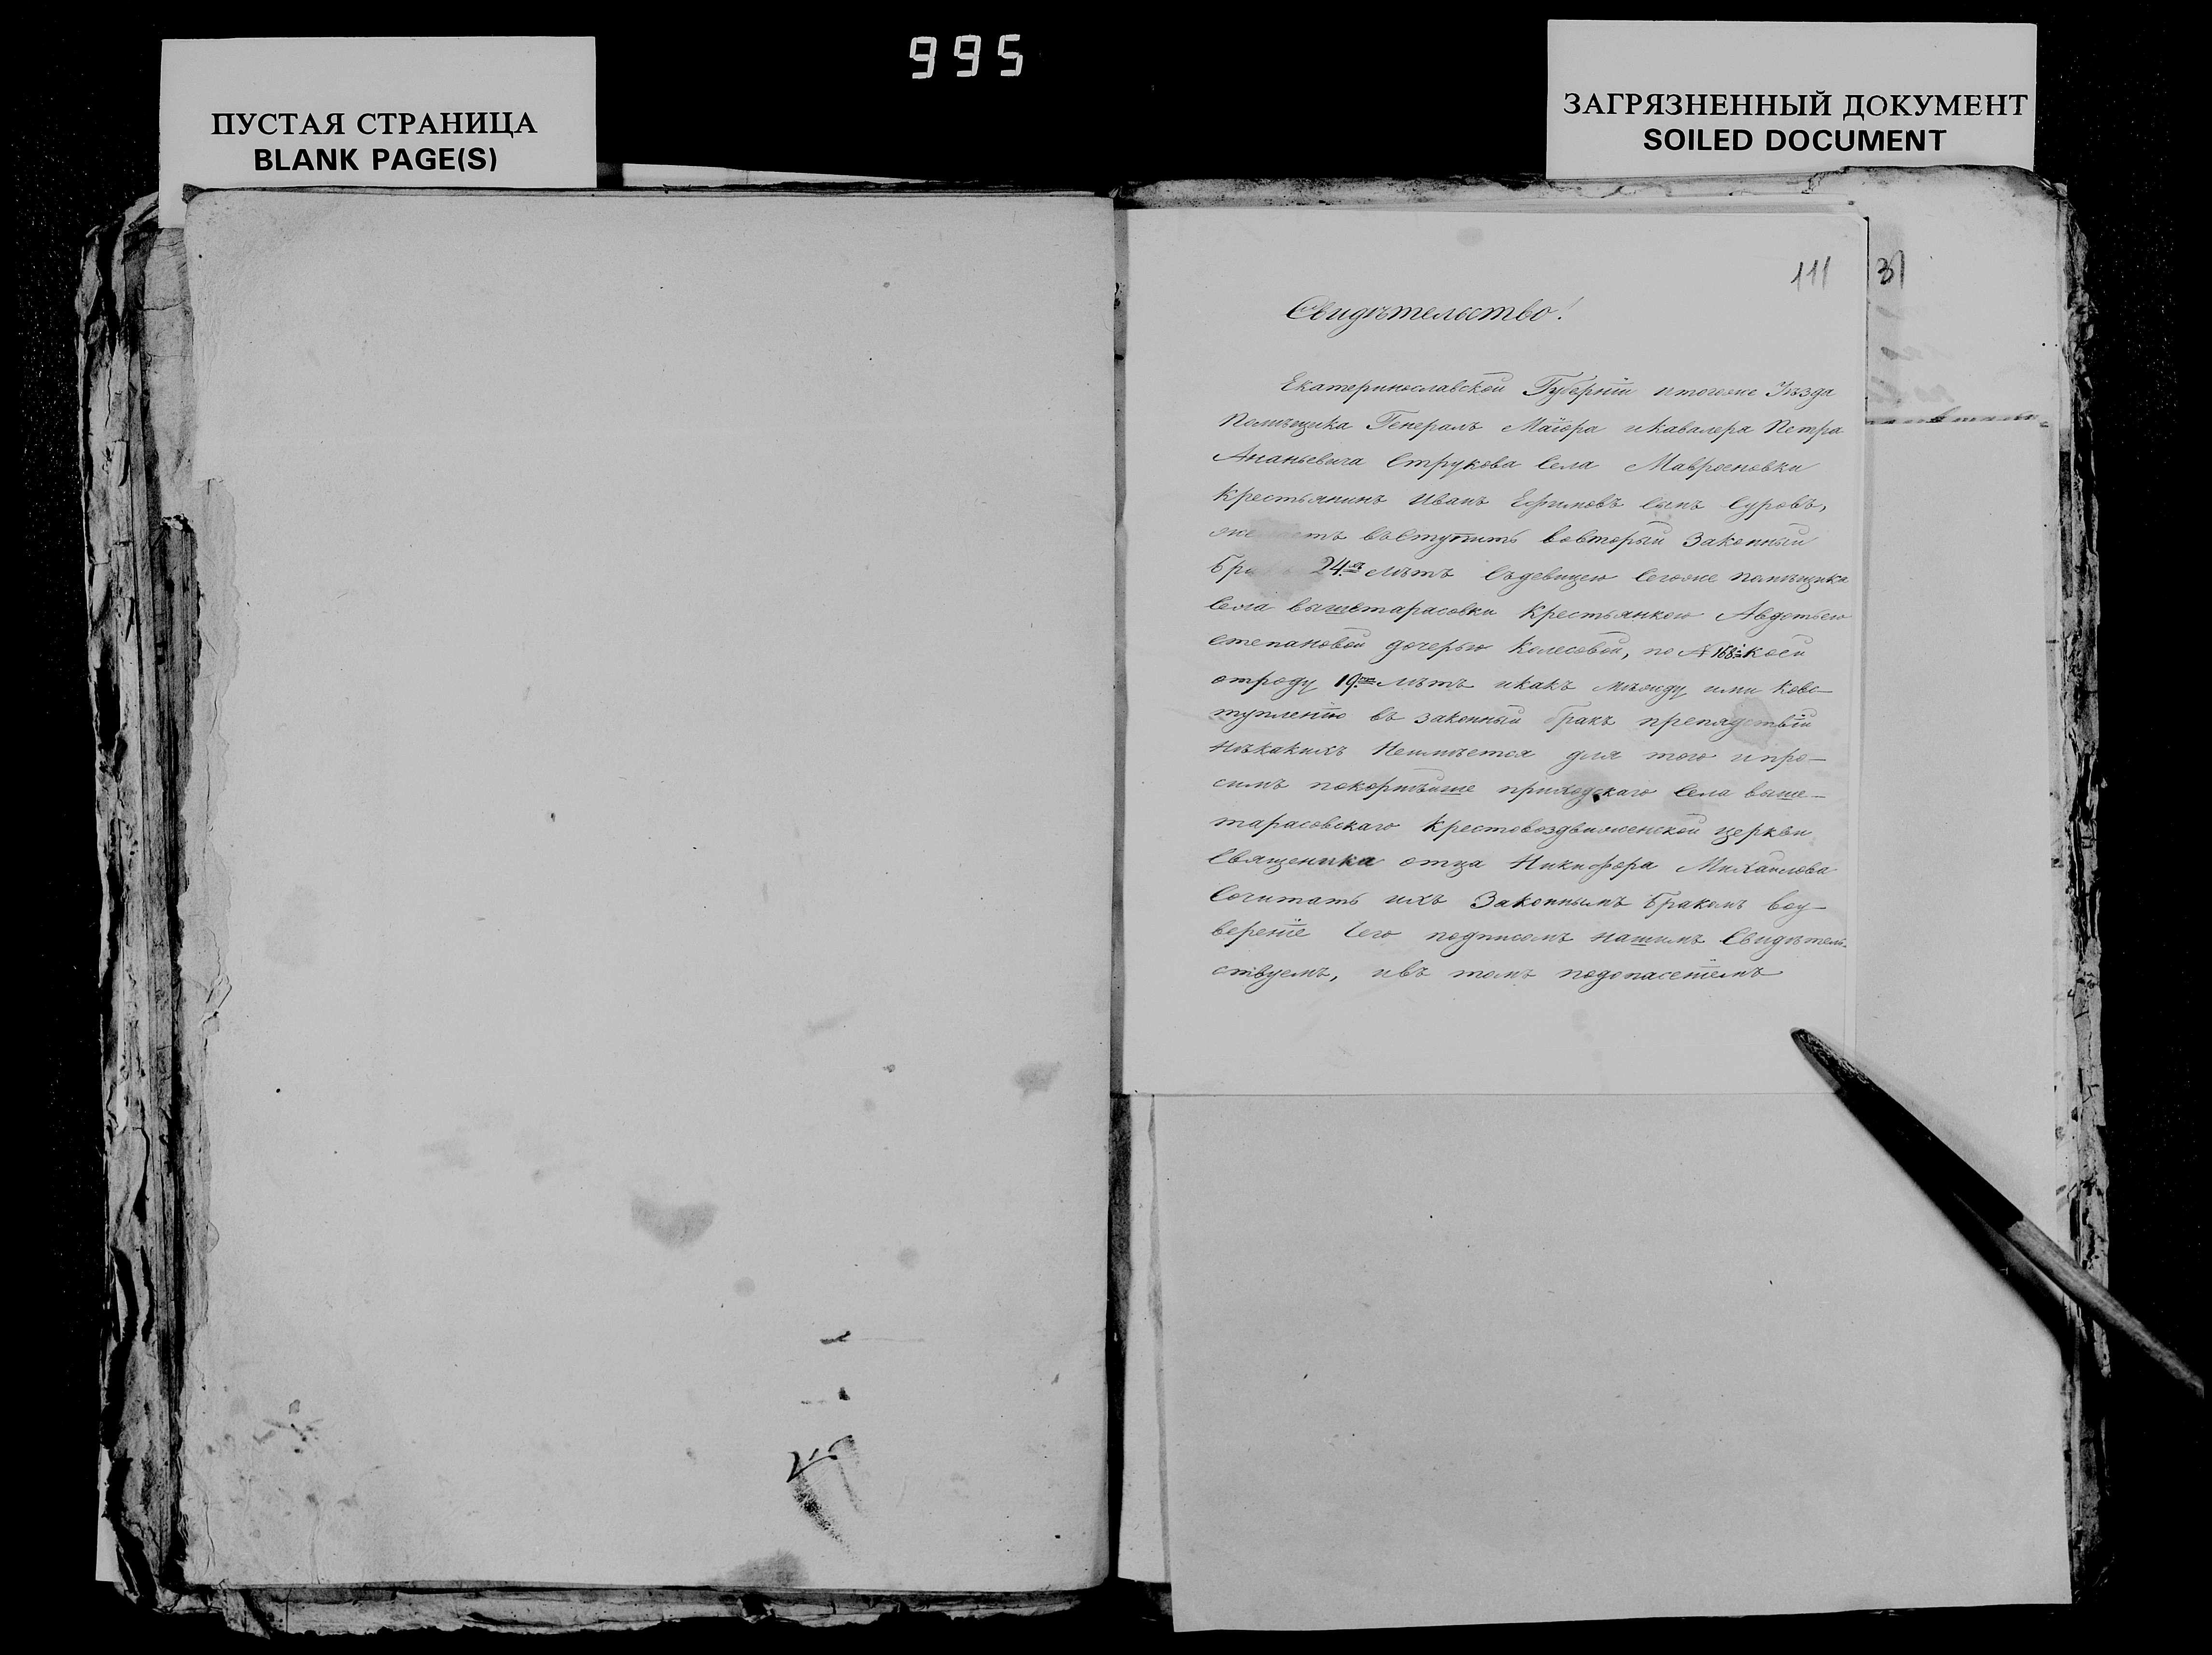 995
ПУСТАЯ СТРАНИЦА
BLANK PAGE(S)
ЗАГРЯЗНЕННЫЙ ДОКУМЕНТ
SOILED DOCUMENT
111
31
Свидѣтельство!
Екатеринославской Губерніи итогоже Уѣзда
Помѣщика Генералъ Маіора икавалера Петра
Ананьевича Струкова Села Мавроеновки
Крестьянинъ Иванъ Ефимовъ Сынъ Суровъ,
въступить вовторый Законный
24.я лѣтъ Съдевицею Сегоже помѣщика
Села вышетарасовки Крестьянкою Авдотьею
Степановой дочерью Колесовой, по № 168:й коей
отроду 19.ть лѣтъ икакъ мѣжду ими ково-
туплению въ законный бракъ препядствій
Нѣкакихъ Неимѣется для того ипро-
симъ покорнѣише приходскаго Села выше-
тарасовскаго Крестовоздвиженской церкви
Священика отца Никифора Михаилова
Сочитать ихъ Законнымъ Бракомъ воу-
вереніе чего подписомъ нашимъ Свидѣтель-
ствуемъ, ивъ томъ подописетемъ